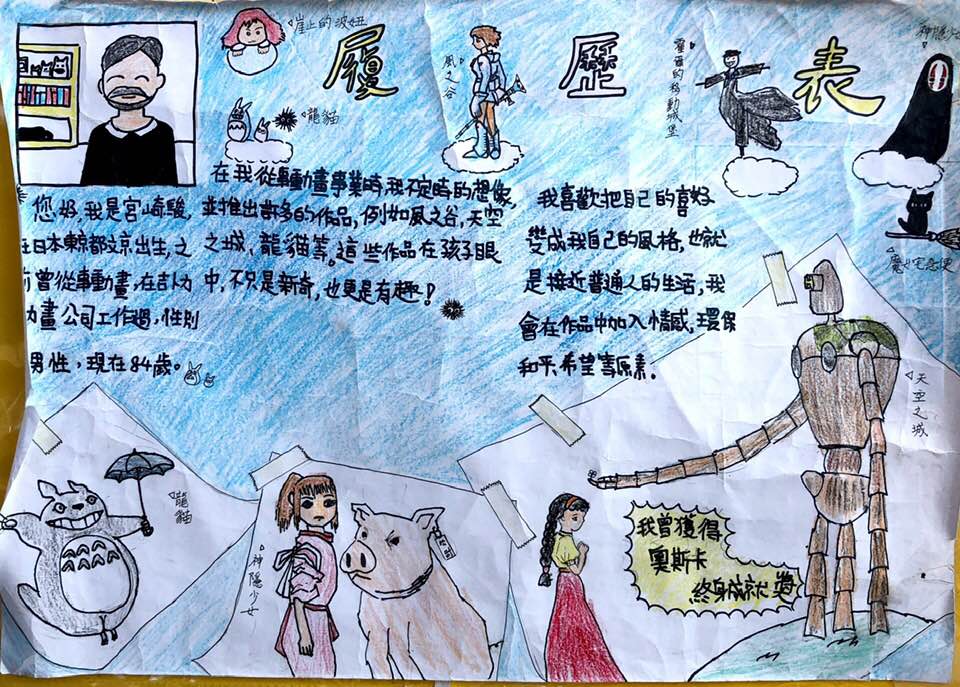 履歷表
崖上的波妞
龍貓
風之谷
霍爾的移動城堡
神隱少
魔女宅急便
您好,我是宮崎駿,
在日本東京都文京出生,之
前曾從事動畫,在吉卜力
動畫公司工作過,性別
男性,現在84歲。
在我從事動畫事業時,我不定時的想像,
並推出許多的作品,例如風之谷,天空
之城,龍貓等。這些作品在孩子眼
中,不只是新奇,也更是有趣!
我喜歡把自己的喜好
變成我自己的風格,也就
是接近普通人的生活,我
會在作品中加入情感,環保
和平,希望等原素.
龍貓
神隱少女
天空之城
我曾獲得
奧斯卡
終身成就獎